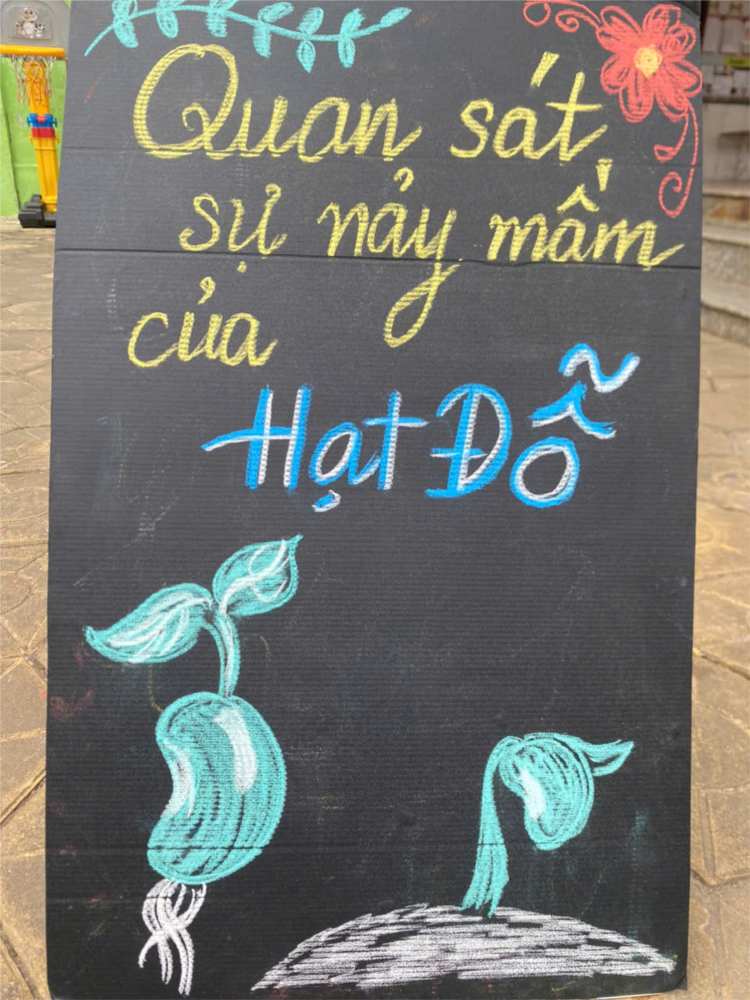 Quan sát
sự nảy mầm
của
Hạt Đỗ